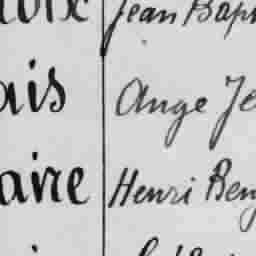 Jean Bap
ais Ange Je
aire Henri Ben